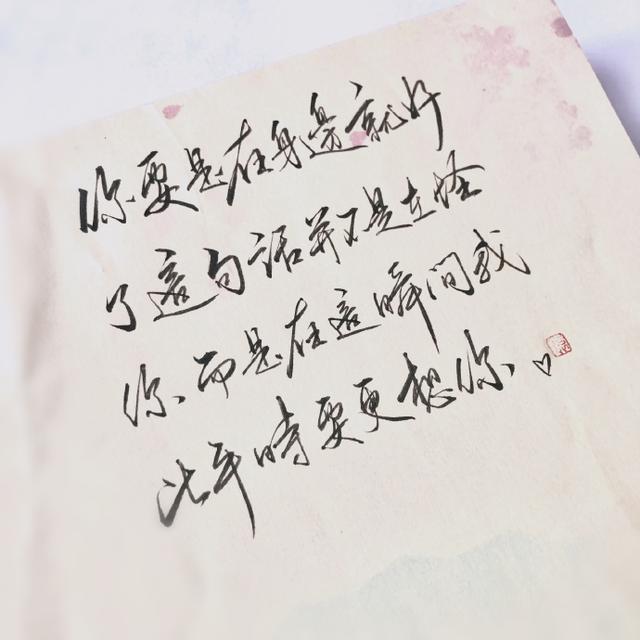 你要是在身邊就好
了這句話并不是在怪
你而是在這瞬间我
比平時要更想你